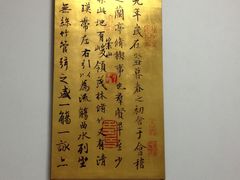 九年歲在癸丑暮春之初會于會稽
之蘭亭脩稧事也羣賢畢至少
集此地有崇山峻領茂林脩竹又有清
湍暎帶左右引以為流觴曲水列坐
無絲竹管弦之盛一觴一詠